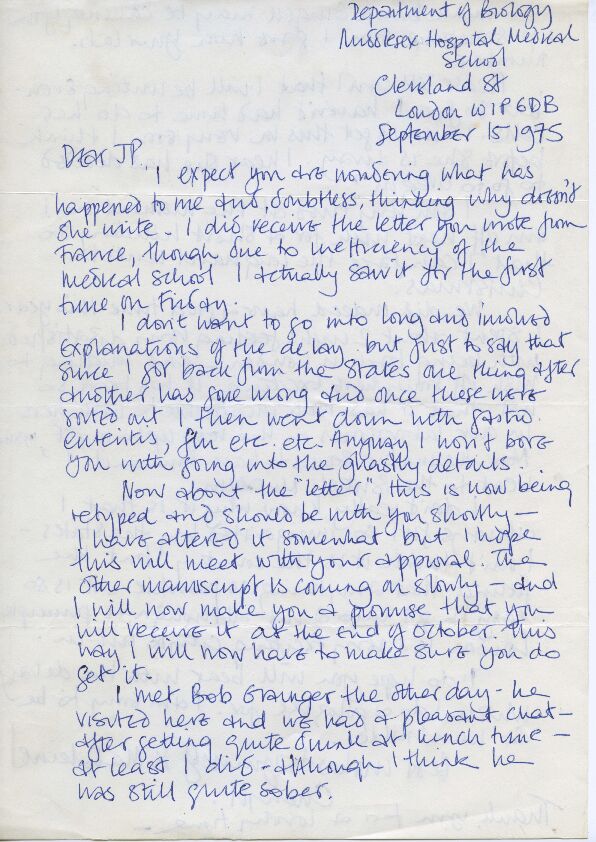 Department of Biology
Middlesex Hospital Medical
School
Clevland St
London W1P 6DB
September 15 1975
Dear JP,
I expect you are wondering what has
happened to me and, doubtless, thinking why doesn't
she write - I did receive the letter you wrote from
France, though due to inefficiency of the
medical school I actually saw it for the first
time on Friday.
I don't want to go into long and involved
explanations of the delay - but just to say that
since I got back from the States one thing after
another has gone wrong and once these were
sorted out I then went down with gastro
enteritis, flu etc. etc. Anyway I won't bore
you with going into the ghastly details.
Now about the "letter", this is now being
retyped and should be with you shortly -
I have altered it somewhat but I hope
this will meet with your approval. The
other manuscript is coming on slowly - and
I will now make you a promise that you
will receive it at the end of October. This
way I will now have to make sure you do
get it.
I met Bob Grainger the other day - he
visited here and we had a pleasant chat -
after getting quite drunk at lunch time -
at least I did - although I think he
was still quite sober.